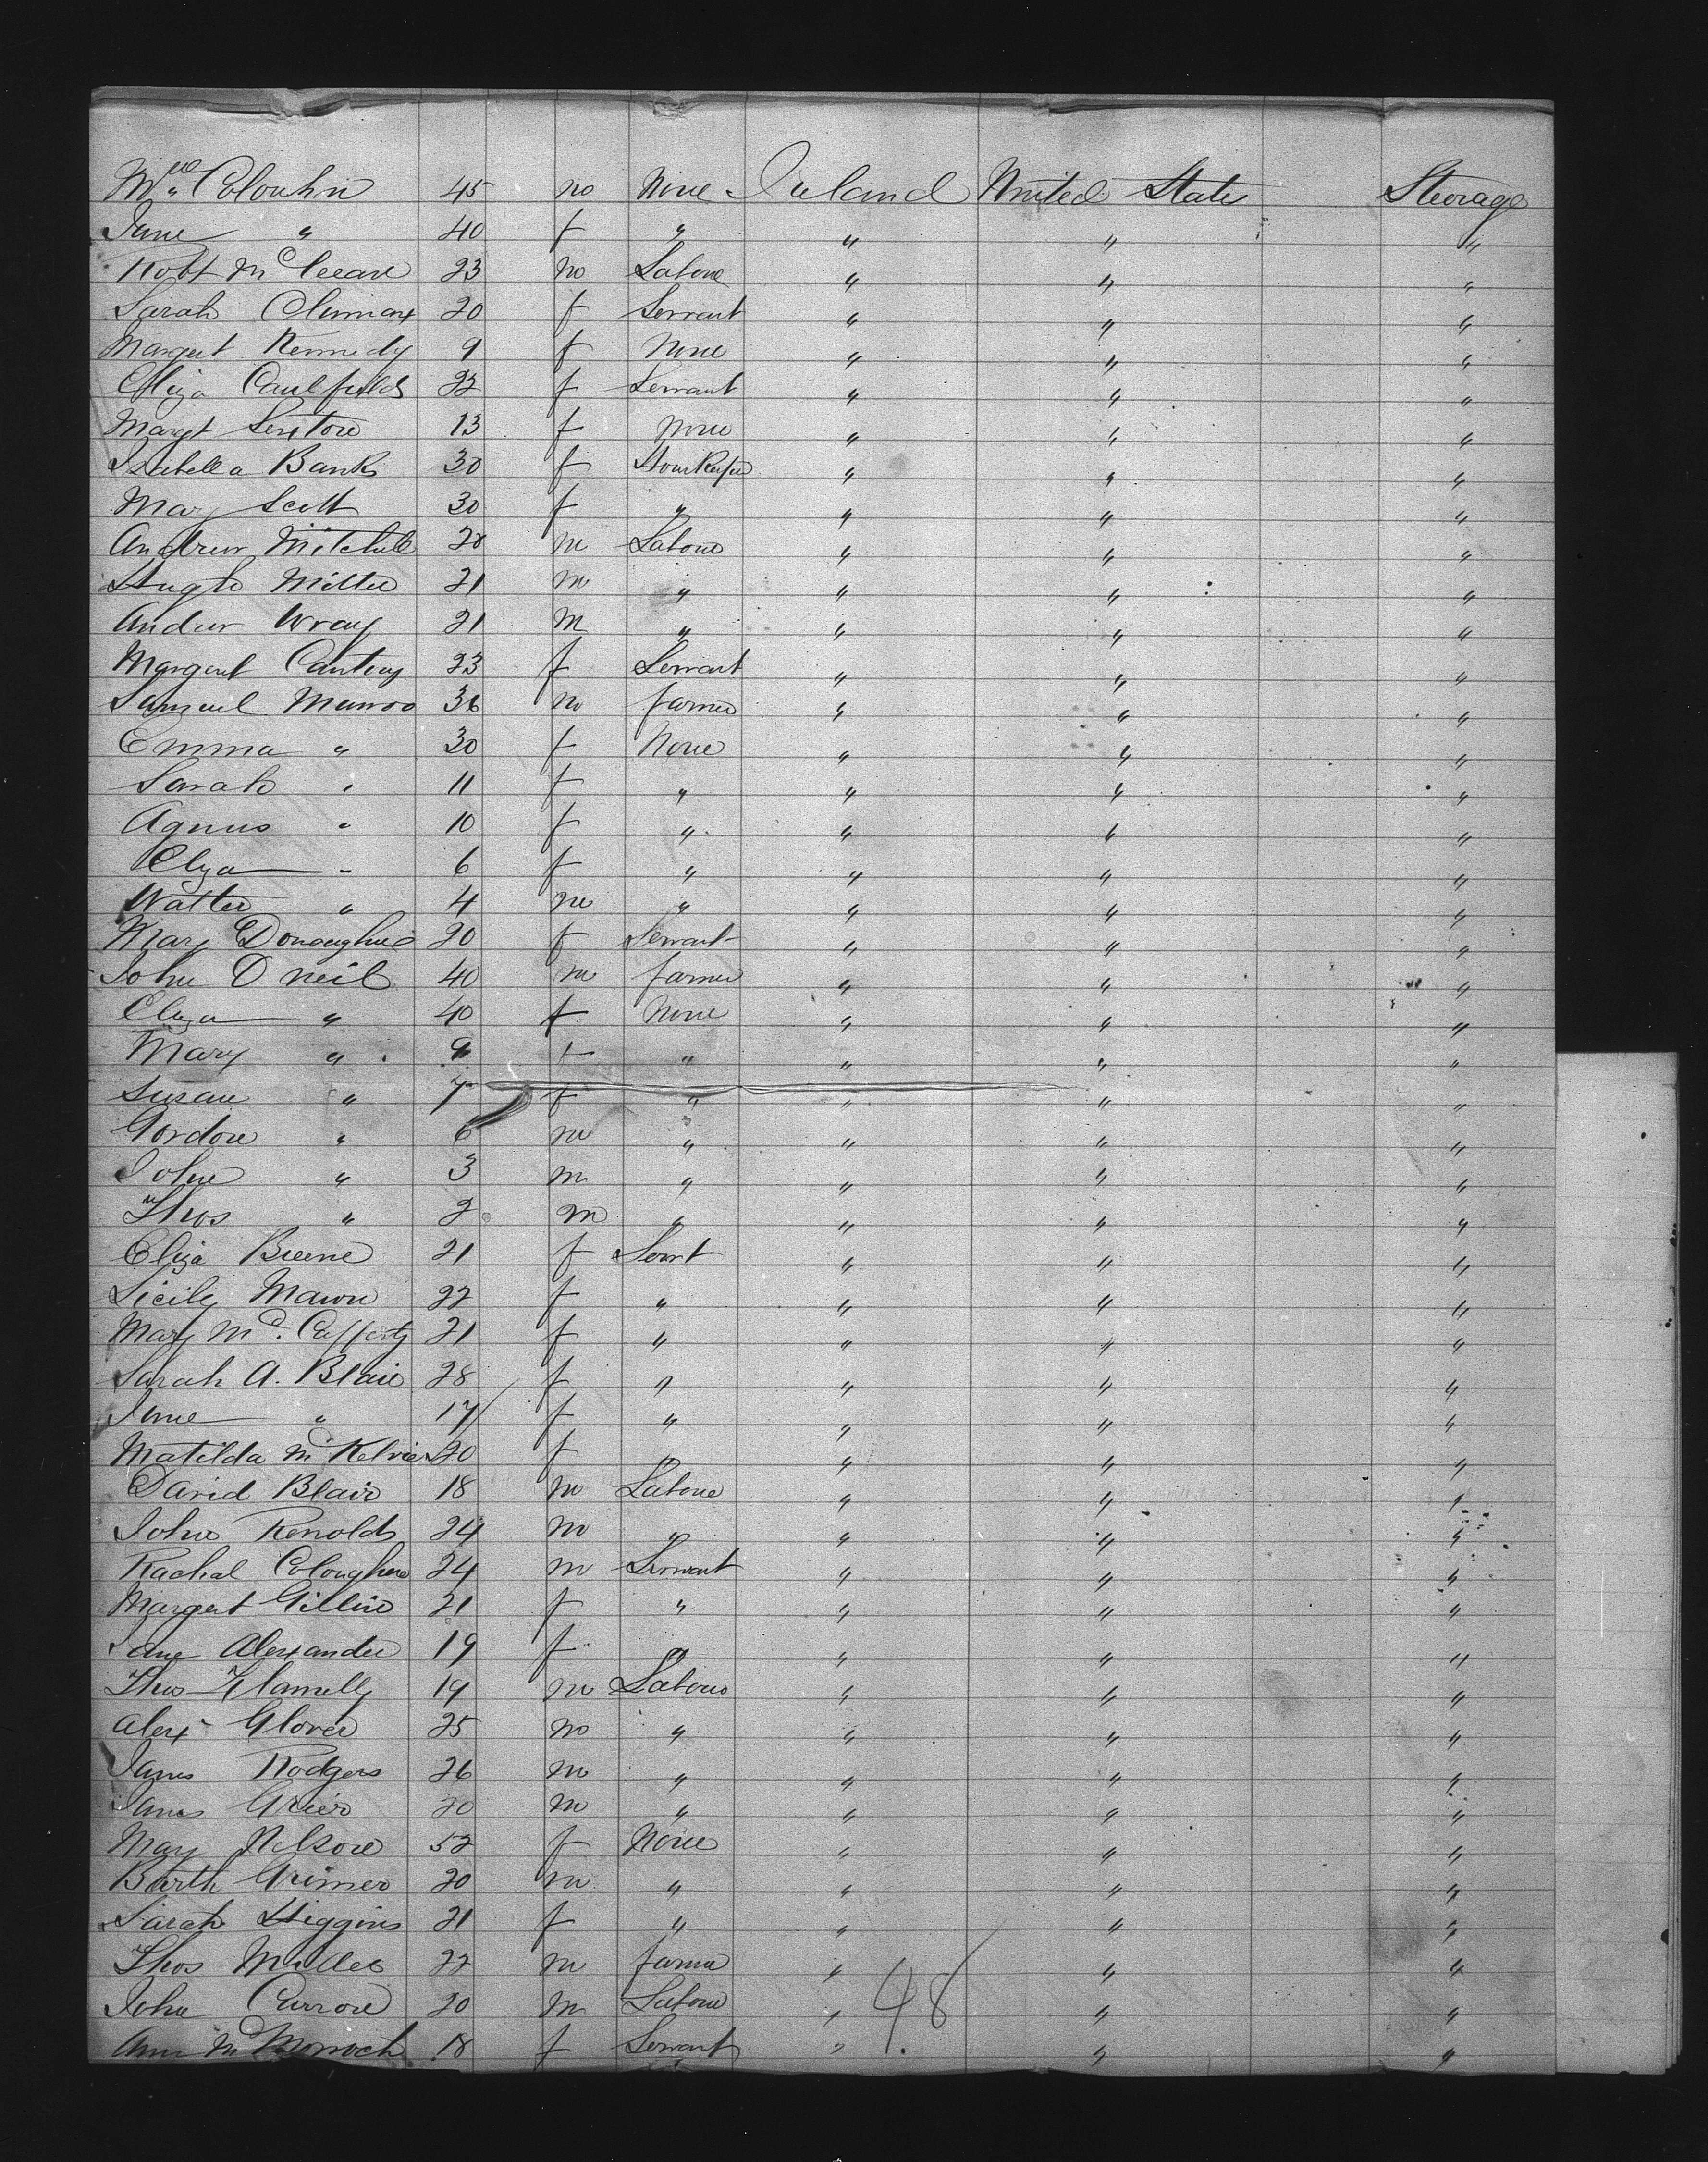 Wm Colouhn 45 m None Ireland United States Steorage
Jane " 40 f " " " "
Robt Mc 23 m Labore " " "
Sarah 20 f Servant " " "
Margret Kennedy 9 f None " " "
Eliza Caulfield 22 f Servant " " "
Margt Sextone 13 f None " " "
Isibella Banks 30 f " " "
Mary Scott 30 f " " " "
Andrew Mitchell 20 m Labore " " "
Hugh Miller 21 m " " " "
Andrew Wray 21 m " " " "
Margaret 23 f Servant " " "
Samuel Munroo 36 m farmer " " "
Emma " 30 f None " " "
Sarah " 11 f " " " "
Agnus " 10 f " " " "
Eliza " 6 f " " " "
Walter " 4 m " " " "
Mary Donaughue 20 f Servant " " "
John O neil 40 m farmer " " "
Eliza " 40 f None " " "
Mary " 9 f " " " "
Susan " 7 f " " " "
Gordon " 6 m " " " "
John " 3 m " " " "
Thos " 2 m " " " "
Eliza 21 f Servt " " "
Sicily Mawn 22 f " " " "
Mary Mc Cafferty 21 f " " " "
Sarah A. Blair 28 f " " " "
Jane " 17 f " " " "
Matilda Mc Kelvie 20 f " " " "
David Blair 18 m Labore " " "
John Renolds 24 m " " " "
Rachal Coloughne 24 m Servant " " "
Margert Gillin 21 f " " " "
Jane Alexander 19 f " " " "
Thos 19 m Labore " " "
Alex Glover 25 m " " " "
James Rodgers 26 m " " " "
James Grier 20 m " " " "
Mary Nelson 52 f None " " "
Barth Grimes 20 m " " " "
Sarah Higgins 21 f " " " "
Thos 22 m farmer " " "
John Curron 20 m Labore " " "
Ann Mc 18 f Servant " " "
48